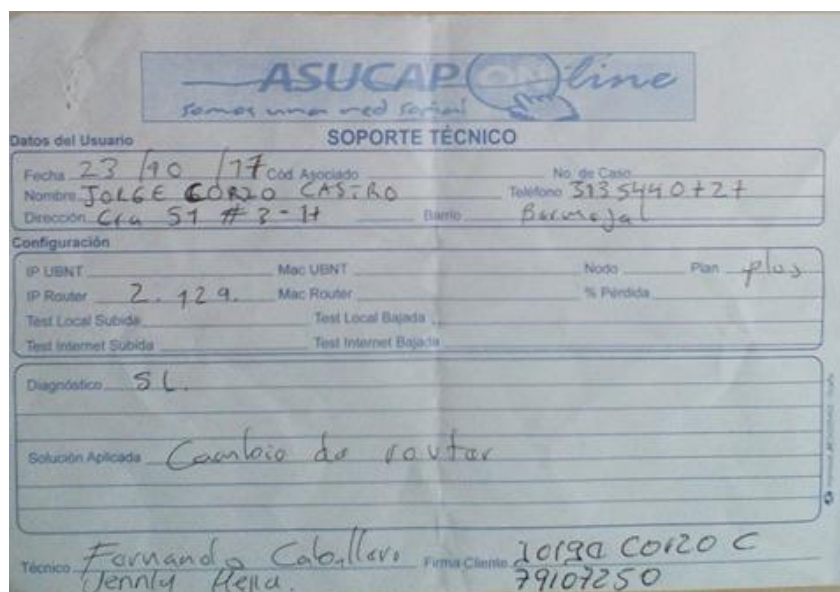 ASUCAP ON line
somos una red social
Datos del Usuario SOPORTE TÉCNICO
Fecha 23/10/17 Cód Asociado No. de Caso
Nombre JORGE CORZO CASTRO Teléfono 3135440727
Dirección Cra 51 # 3-17 Barrio Bermejal
Configuración
IP UBNT Mac UBNT Nodo Plan plus
IP Router 2.129. Mac Router % Pérdida
Test Local Subida Test Local Bajada
Test Internet Subida Test Internet Bajada
Diagnóstico SL.
Solución Aplicada Cambio de router
Técnico Fernando Caballero Firma Cliente Jorge Corzo C
Jennly 79107250